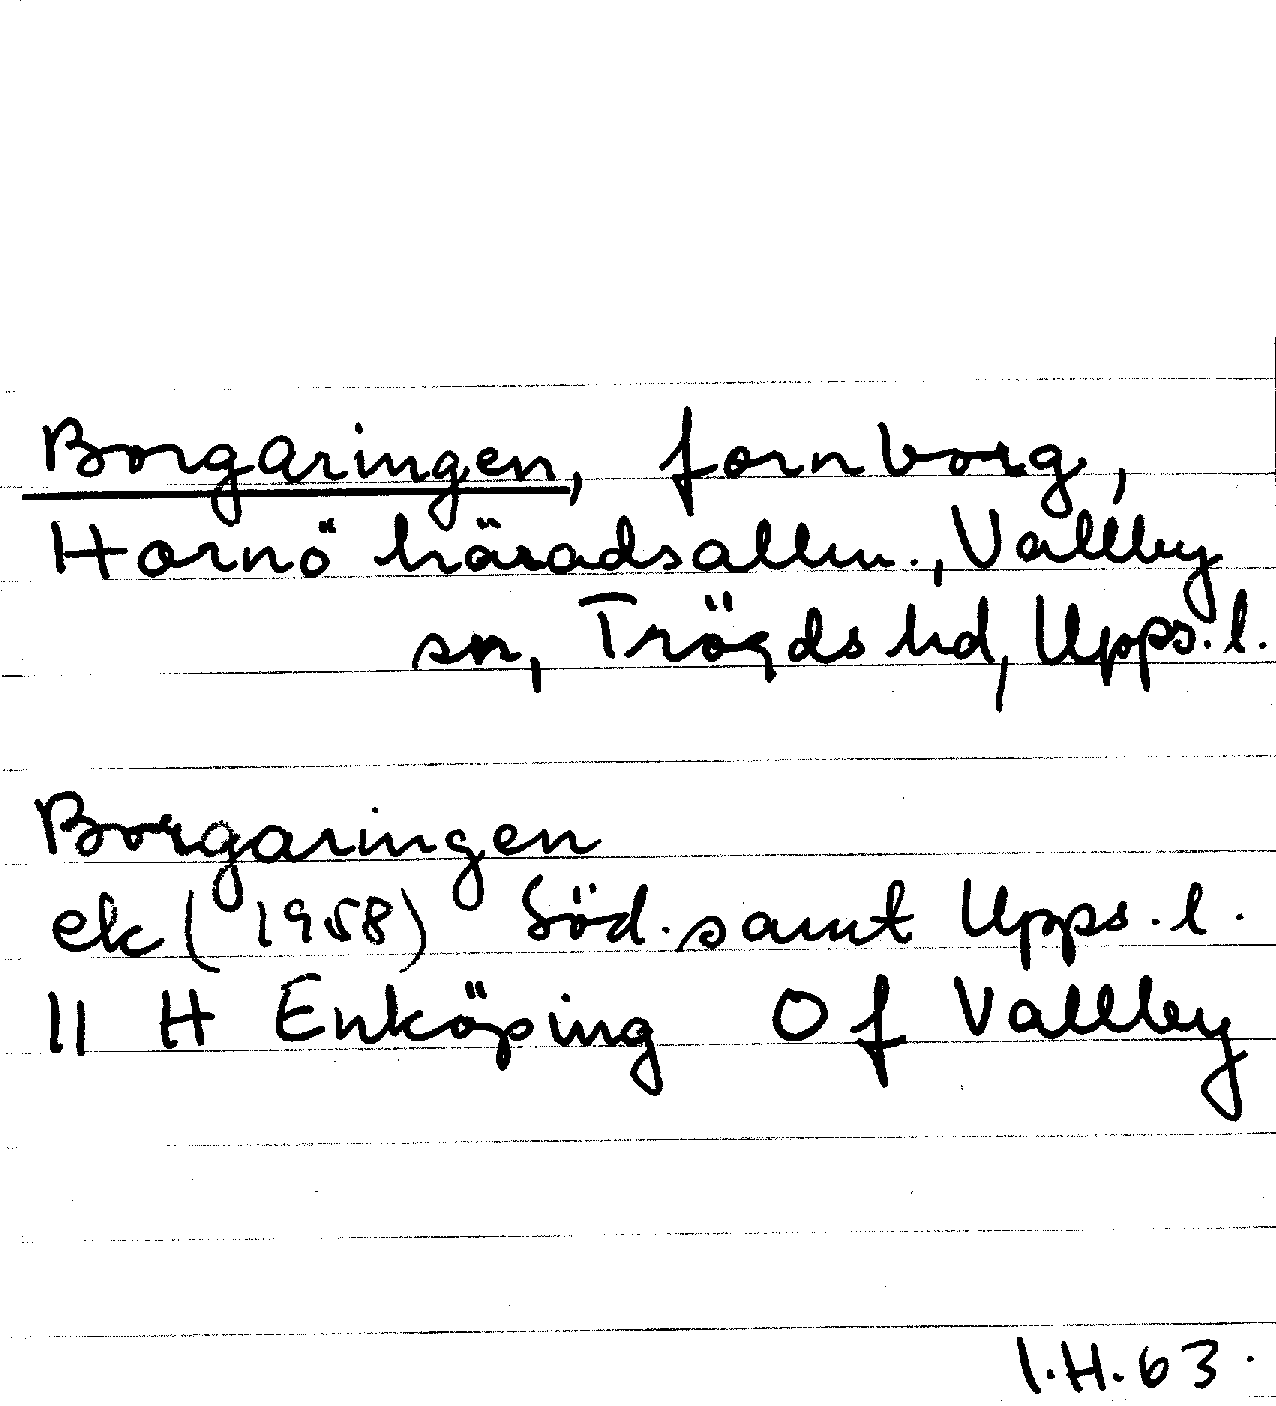 Borgaringen, fornborg,
Hornö häradsallm., Vallby
sn, Trögds hd, Upps. l.
Borgaringen
ek (1958) Söd. samt Upps. l.
11 H Enköping Of Vallby
I.H. 63.